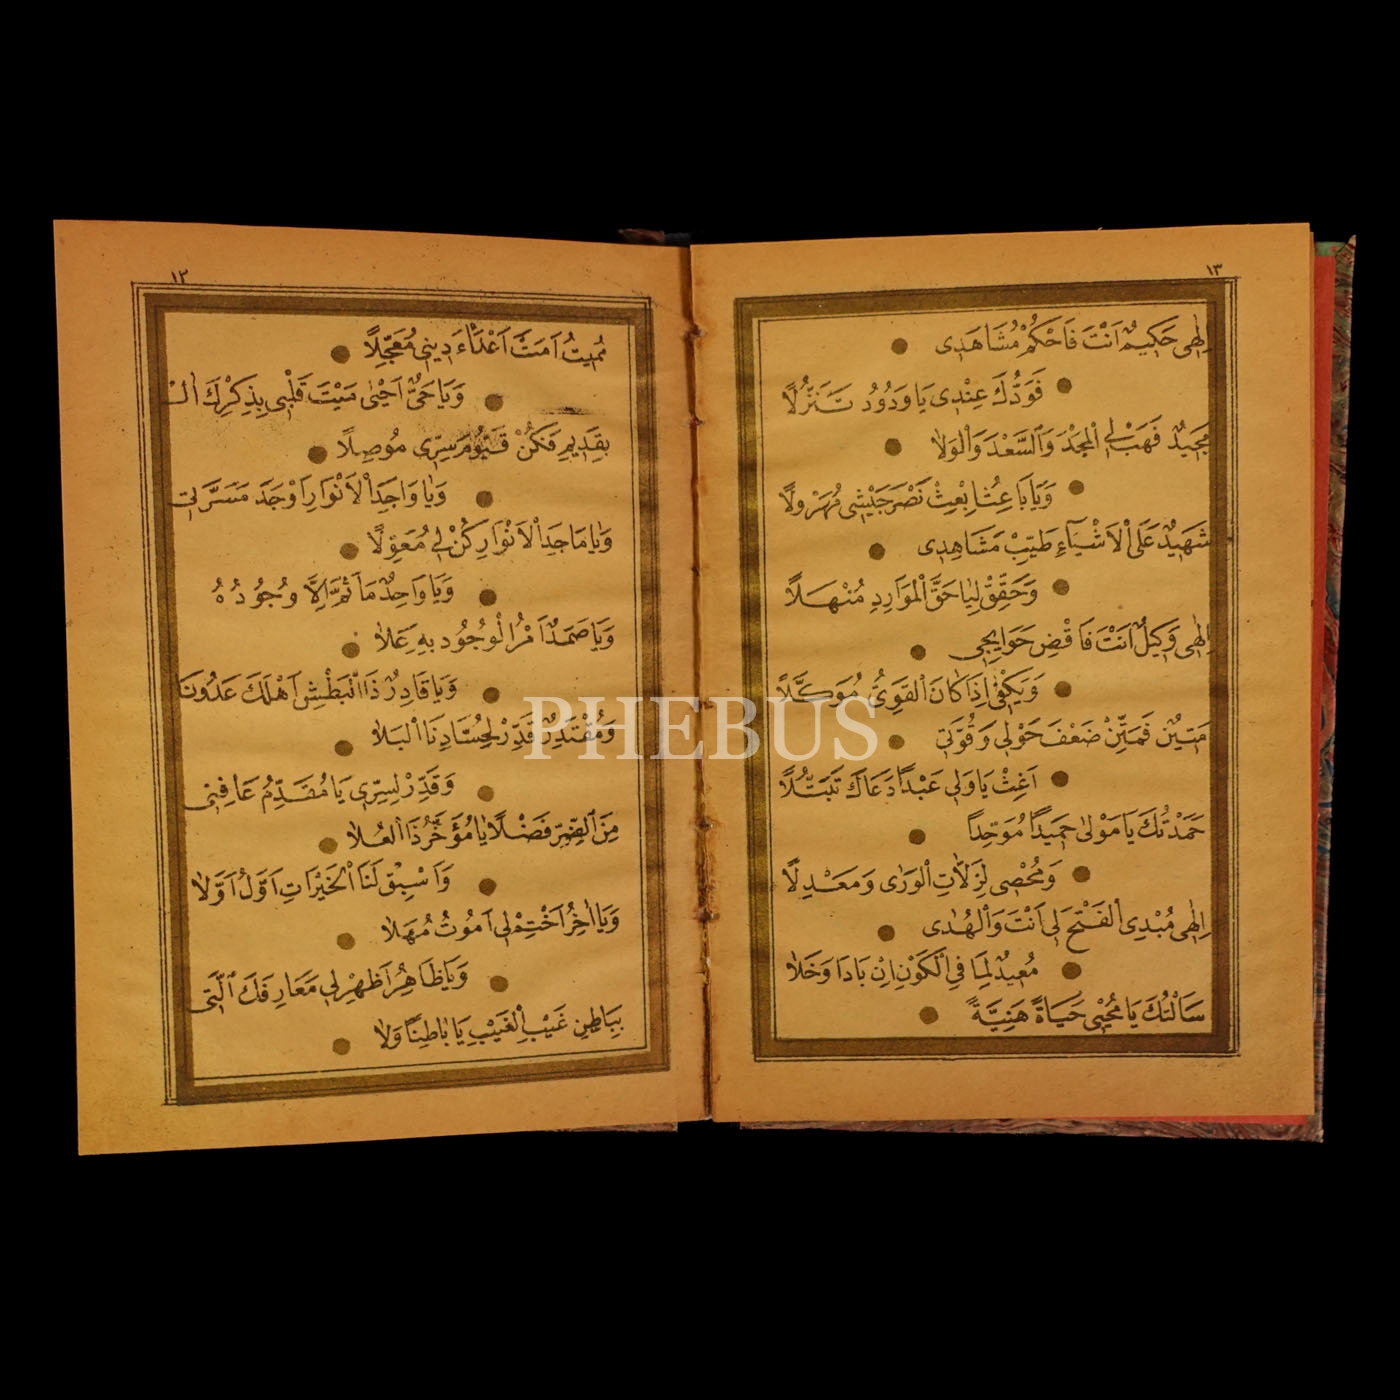 ١٣
اِلٰهِى حَكِيمٌ اَنْتَ فَاحْكُمْ مُشَاهَدِى
فَوَدُّكَ عِنْدِى يَا وَدُودُ تَنَزَّلًا
مَجِيدٌ فَهَبْ لِى الْمَجْدَ وَالسَّعْدَ وَالْوِلَا
وَيَا بَاعِثُ ابْعِثْ نَصْرَ جَيْشِى مُهَرْوِلًا
شَهِيدٌ عَلَى الْاَشْيَاءِ طَيِّبْ مَشَاهِدِى
وَحَقِّقْ لِى يَا حَقُّ الْمَوَارِدِ مُنْهَلًا
اِلٰهِى وَكِيلٌ اَنْتَ فَاقْضِ حَوَايِجِى
وَيَكْفِى اِذَا كَانَ الْقَوِىُّ مُوَكَّلًا
مَتِينٌ فَمَتِّنْ ضَعْفَ حَوْلِى وَقُوَّتِى
اَغِثْ يَا وَلِى عَبْدًا دَعَاكَ تَبَتُّلًا
حَمَدْتُكَ يَا مَوْلٰى حَمِيدًا مُوَحِّدًا
وَمُحْصِى لِزَلَّاتِ الْوَرٰى وَمَعَدِّلًا
اِلٰهِى مُبْدِى الْفَتْحَ لِى اَنْتَ وَالْهُدٰى
مُعِيدٌ لِمَا فِى الْكَوْنِ اِنْ بَادَا وَخَلَا
سَاَلْتُكَ يَا مُحْيِى حَيَاةً هَنِيَّةً
١٢
مُمِيتُ اَمِتْ اَعْدَاءَ دِينِى مُعَجِّلًا
وَيَا حَىُّ اَحْيِى مَيْتَ قَلْبِى بِذِكْرِكَ الْ
بِقَدِيمِ فَكُنْ قَيُّومَ سِرِّى مُوصِلًا
وَيَا وَاجِدَ الْاَنْوَارِ اَوْجَدَ مَسَرَّتِى
وَيَا مَاجِدَ الْاَنْوَارِ كُنْ لِى مُعَوِّلًا
وَيَا وَاحِدٌ مَا ثَمَّ اِلَّا وُجُودُهُ
وَيَا صَمَدٌ اَمْرُ الْوُجُودِ بِهِ عَلَا
وَيَا قَادِرُ ذَا الْبَطْشِ اَهْلَكَ عَدُوَّنَا
وَمُقْتَدِرٌ قَدِّرْ لِحُسَّادِنَا الْبَلَا
وَقَدِّرْ لِسِرِّى يَا مُقَدِّمُ عَافِنِى
مِنَ الضُّرِّ فَضْلًا يَا مُؤَخِّرُ ذَا الْعُلَا
وَاَسْبِقْ لَنَا الْخَيْرَاتِ اَوَّلُ اَوَّلَا
وَيَا اٰخِرُ اخْتِمْ لِى اَمُوتُ مُهَلَّا
وَيَا ظَاهِرُ اَظْهِرْ لِى مَعَارِفَكَ الَّتِى
بِبَاطِنِ غَيْبِ الْغَيْبِ يَا بَاطِنًا وَلَا
PHEBUS